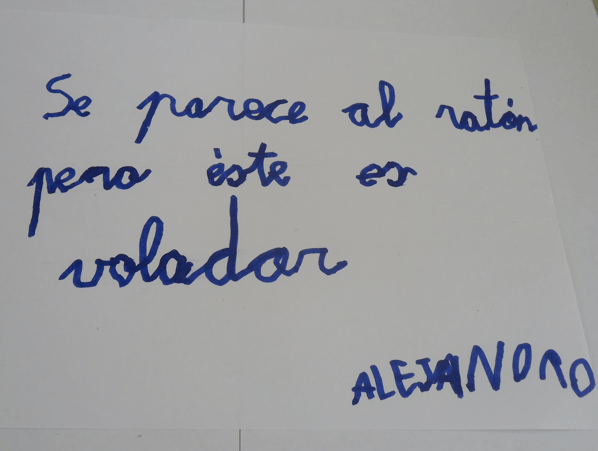 Se parece al ratón
pero éste es
volador
ALEJANDRO